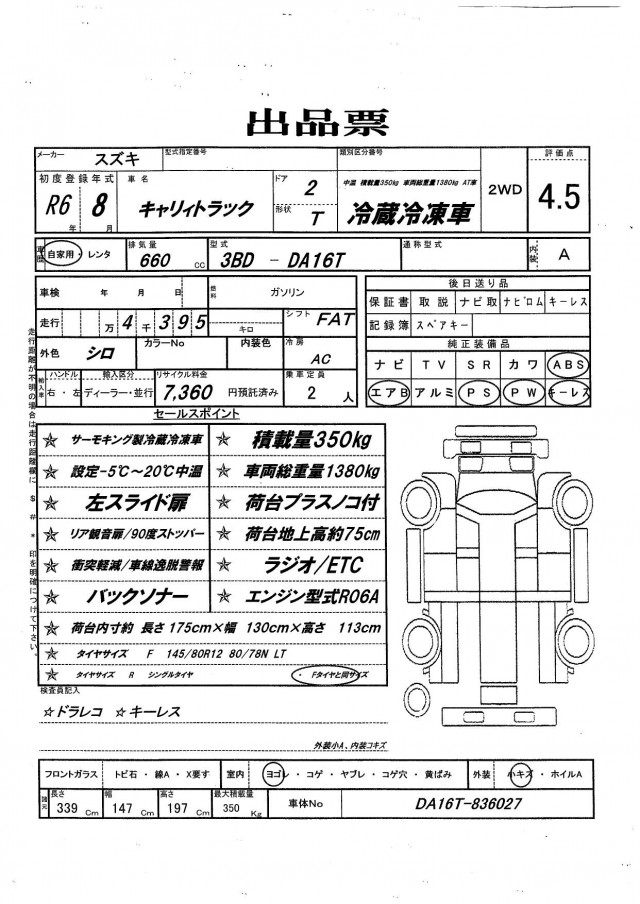 出品票
メーカー スズキ 型式指定番号 類別区分番号 評価点
初度登録年式 R6年 8月 車名 キャリィトラック ドア 2 形状 T 中温 積載量350kg 車両総重量1380kg AT車 冷蔵冷凍車 2WD 4.5
車歴 自家用・レンタ 排気量 660 CC 型式 3BD - DA16T 通称型式 内装 A
車検 年 月 日 燃料 ガソリン
走行 万 4 千 3 9 5 キロ シフト FAT
外色 シロ カラーNo 内装色 冷房 AC
輸入車 ハンドル 右・左 輸入区分 ディーラー・並行 リサイクル料金 7,360 円預託済み 乗車定員 2 人
後日送り品
保証書 取説 ナビ取 ナビロム キーレス
記録簿 スペアキー
純正装備品
ナビ TV SR カワ ABS
エアB アルミ PS PW キーレス
セールスポイント
☆ サーモキング製冷蔵冷凍車 ☆ 積載量350kg
☆ 設定-5℃~20℃中温 ☆ 車両総重量1380kg
☆ 左スライド扉 ☆ 荷台プラスノコ付
☆ リア観音扉/90度ストッパー ☆ 荷台地上高約75cm
☆ 衝突軽減/車線逸脱警報 ☆ ラジオ/ETC
☆ バックソナー ☆ エンジン型式R06A
☆ 荷台内寸約 長さ175cm×幅 130cm×高さ 113cm
☆ タイヤサイズ F 145/80R12 80/78N LT
☆ タイヤサイズ R シングルタイヤ ・Fタイヤと同サイズ
走行距離が不明の場合は走行距離欄に $ # * 印を明確につけて下さい。
検査員記入
☆ドラレコ ☆キーレス
外装小A、内装コキズ
フロントガラス トビ石・線A・X要す 室内 ヨゴレ・コゲ・ヤブレ・コゲ穴・黄ばみ 外装 小キズ・ホイルA
諸元 長さ 339 Cm 幅 147 Cm 高さ 197 Cm 最大積載量 350 Kg 車体No DA16T-836027